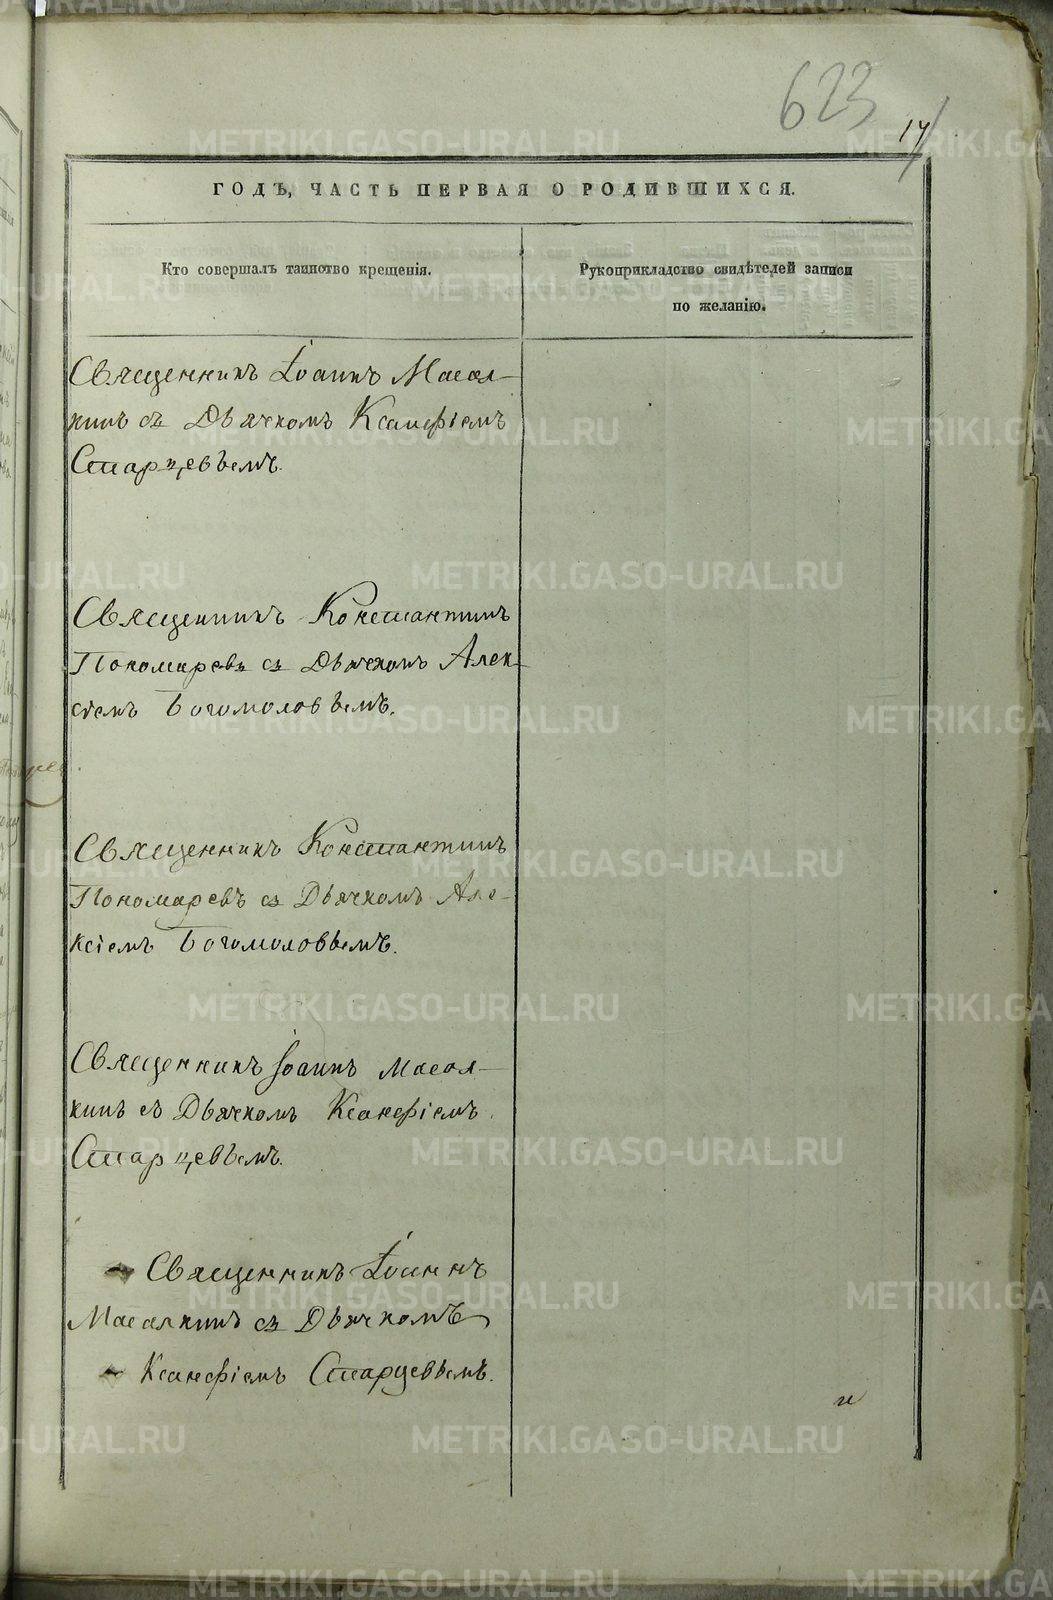 623
14
ГОДЪ, ЧАСТЬ ПЕРВАЯ О РОДИВШИХСЯ.
Кто совершалъ таинство крещенія.
Рукоприкладство свидѣтелей записи
по желанію.
Священникъ Іоаннъ Масал-
кинъ съ Дьячкомъ Ксанфіемъ
Старцевъемъ.
Священникъ Константинъ
Пономаревъ съ Дьячкомъ Алек-
сіемъ Богомоловъемъ.
Священникъ Константинъ
Пономаревъ съ Дьячкомъ Але-
ксіемъ Богомоловьемъ.
Священникъ Іоаннъ Масал-
кинъ съ Дьячкомъ Ксанфіемъ
Старцевъемъ.
Священникъ Іоаннъ
Масалкинъ съ Дьячкомъ
Ксанфіемъ Старцевьемъ.
METRIKI.GASO-URAL.RU